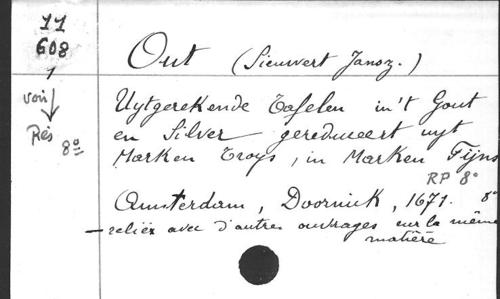 11
608
1
voir
Rés
8º
Out (Sieuwert Jansz.)
Uytgerekende Tafelen in't Gout
en Silver gereduceert uyt
Marken Troys, in Marken Fijns
RP 8º
Amsterdam, Doornick, 1671. 8º
— reliéz avec d'autres ouvrages sur la même
matière